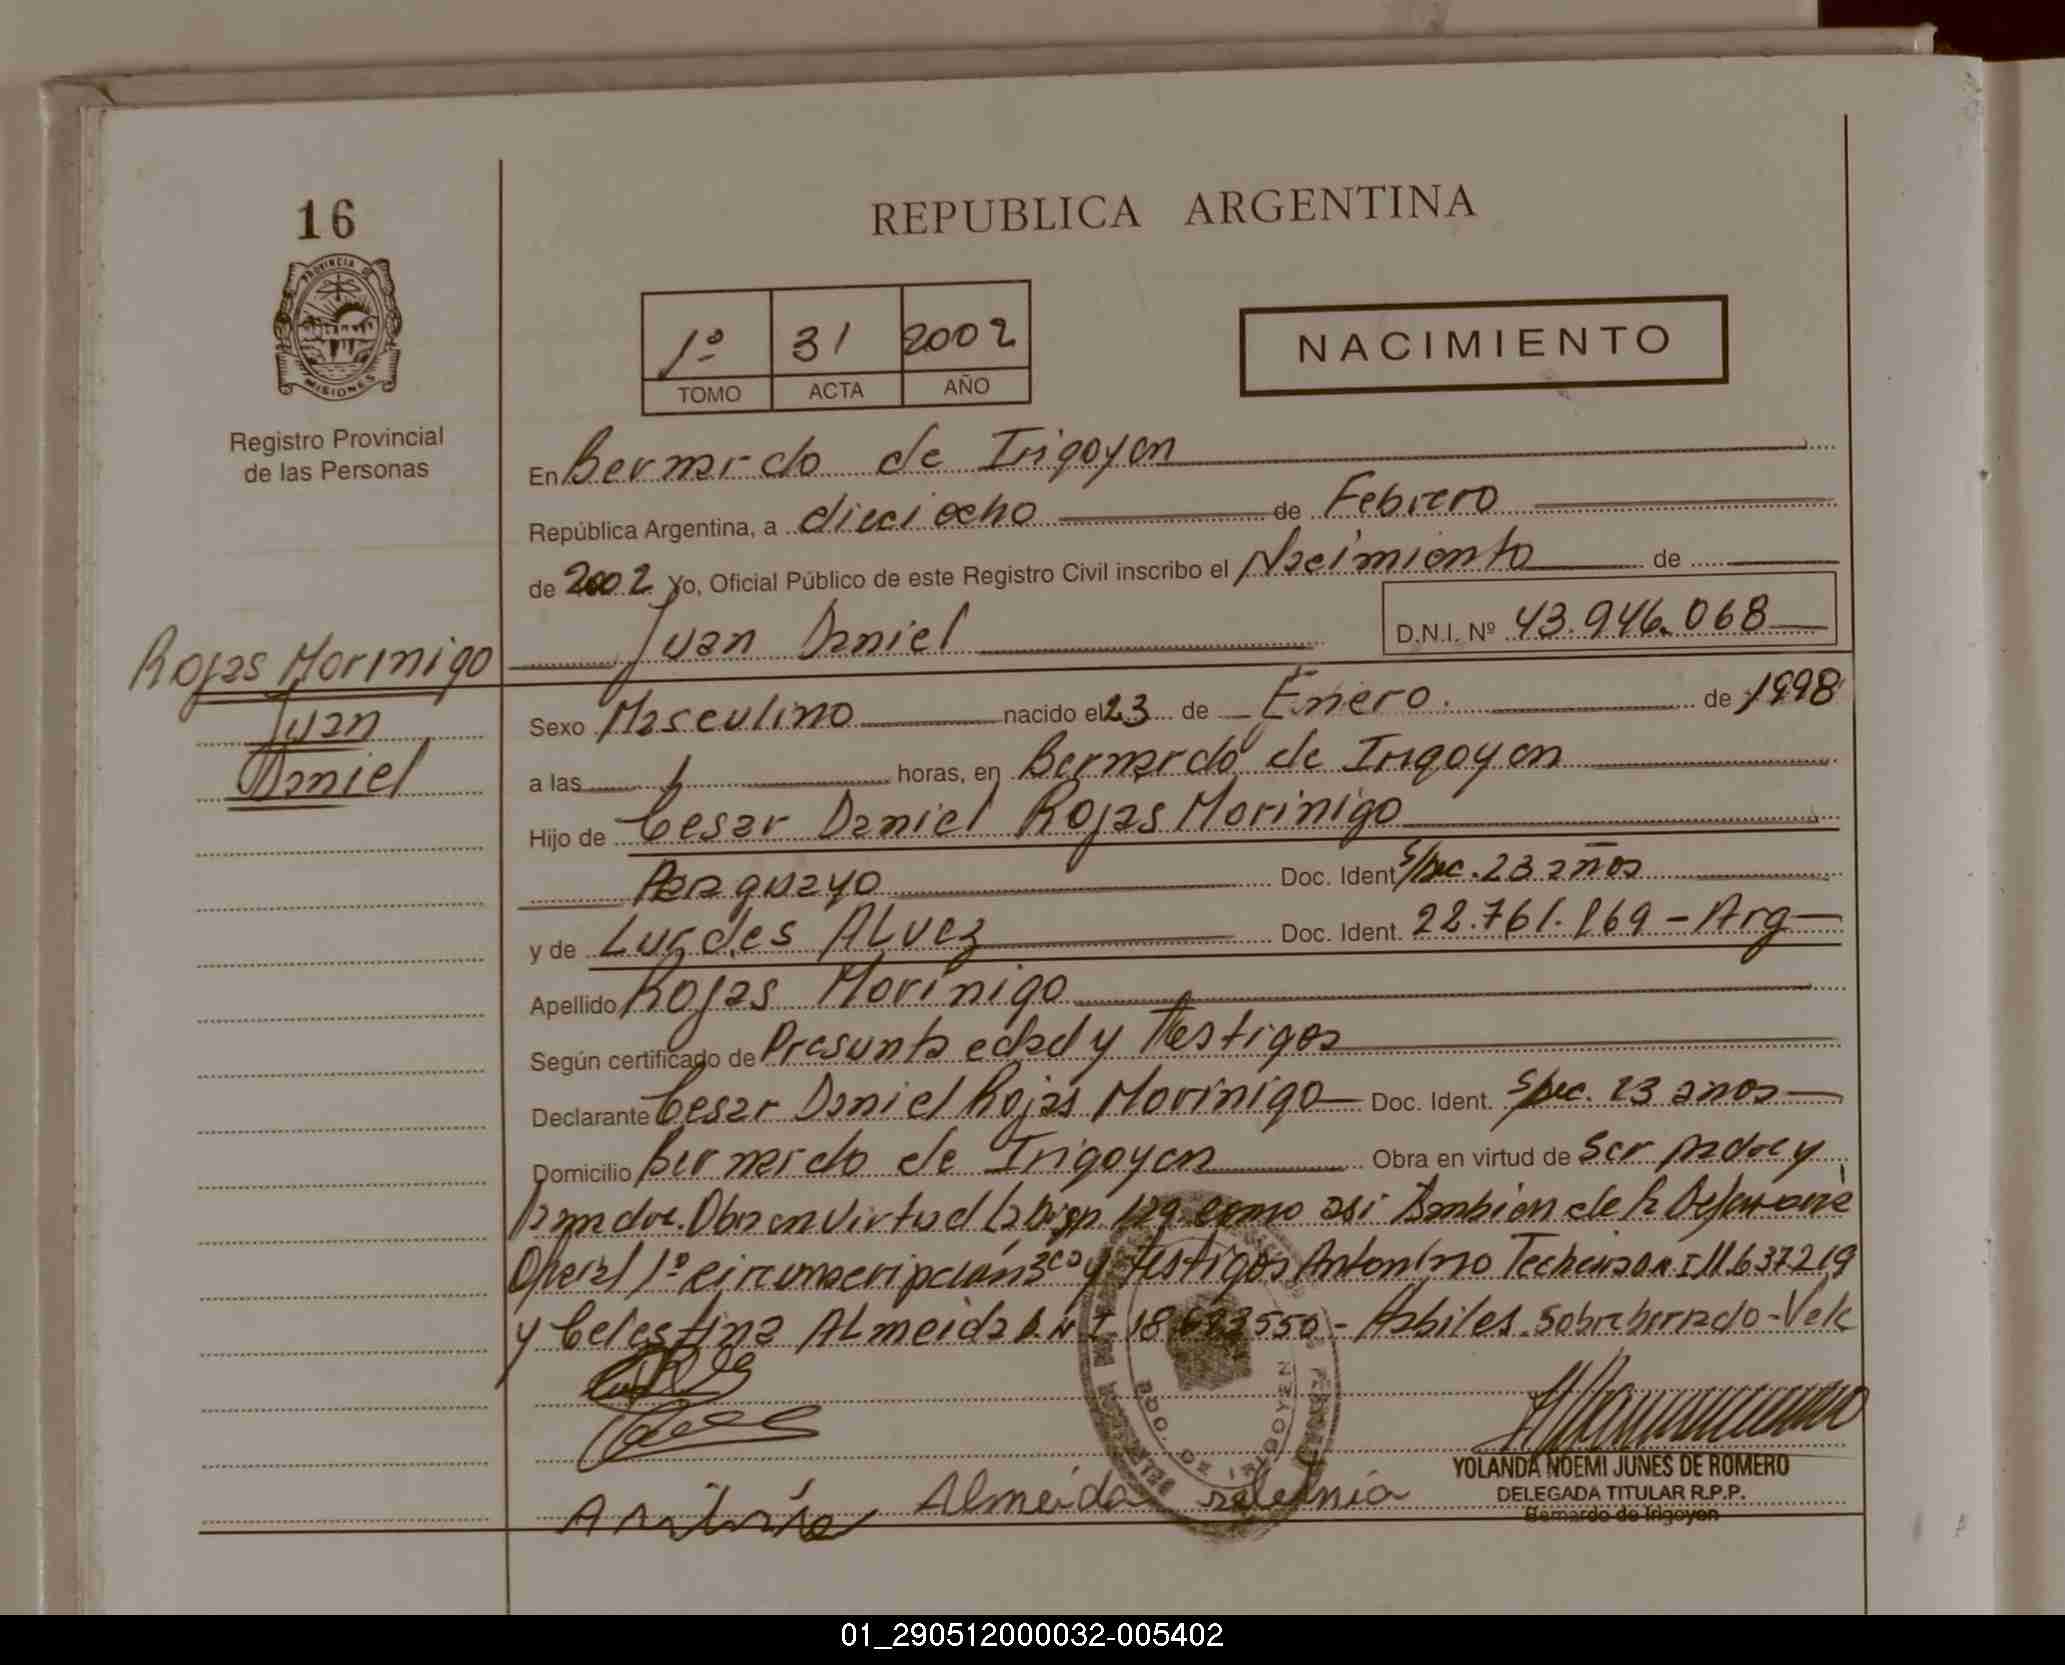 16
PROVINCIA DE
MISIONES
Registro Provincial
de las Personas
Rojas Morinigo
Juan
Daniel
REPUBLICA ARGENTINA
1º 31 2002
TOMO ACTA AÑO
NACIMIENTO
En Bernardo de Irigoyen
República Argentina, a dieciocho de Febrero
de 2002 Yo, Oficial Público de este Registro Civil inscribo el Nacimiento de
Juan Daniel D.N.I. Nº 43.946.068
Sexo Masculino nacido el 23 de Enero. de 1998
a las 1 horas, en Bernardo de Irigoyen
Hijo de Cesar Daniel Rojas Morinigo
Paraguayo Doc. Ident. S/Doc. 23 años
y de Lurdes ALvez Doc. Ident. 22.761.169 - Arg
Apellido Rojas Morinigo
Según certificado de Presunta edad y Testigos
Declarante Cesar Daniel Rojas Morinigo Doc. Ident. S/Doc. 23 años
Domicilio Bernardo de Irigoyen Obra en virtud de Ser padre y
la madre. Obra en virtud la Disp. como asi tambien de la
1º circunscripción y testigos Antonino D.N.I 11.637219
y Celestina ALmeida D.N.I. 18 550 - Habiles. Sobreborrado - Vale
BDO. DE IRIGOYEN
Almeida
YOLANDA NOEMI JUNES DE ROMERO
DELEGADA TITULAR R.P.P.
Bernardo de Irigoyen
01_290512000032-005402